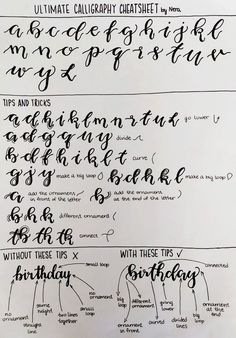 ULTIMATE CALLIGRAPHY CHEATSHEET by Nera
a b c d e f g h i j k l
m n o p q r s t u v
w y z
TIPS AND TRICKS
a d h i k l m n r t u h go lower
a d g q u y divide
b d f h i k l t curve
g j y make a big loop b d h k l make a big loop
a add the ornaments in front of the letter b add the ornament at the end of the letter
b h k different ornament
tb th tk connect
WITHOUT THESE TIPS X WITH THESE TIPS ✓
small loop connected
birthday birthday
no ornament
straight line
same height
two lines together
small loop
no ornament
ornament in front
big loop
different ornament
curved
going lower
divided lines
big loop
ornament at the end